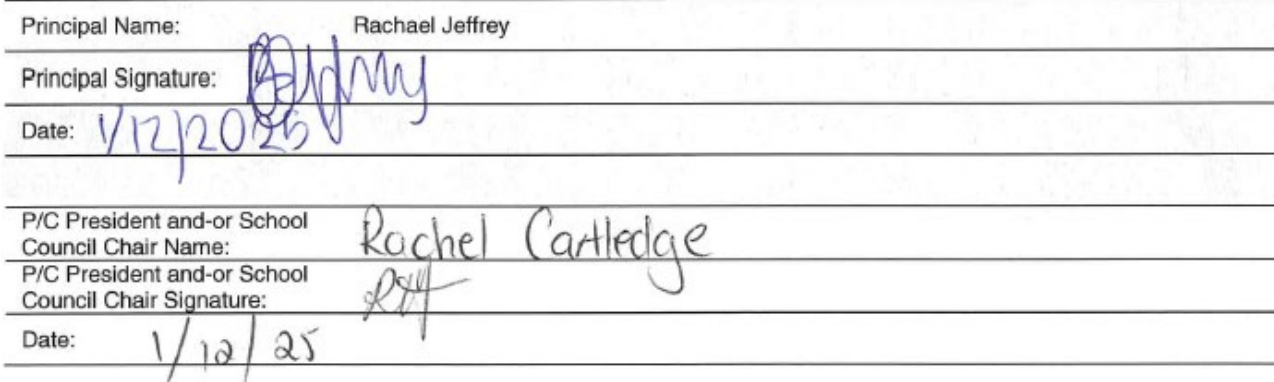 Principal Name: Rachael Jeffrey
Principal Signature:
Date: 1/12/2025
P/C President and-or School
Council Chair Name: Rachel Cartledge
P/C President and-or School
Council Chair Signature:
Date: 1/12/25